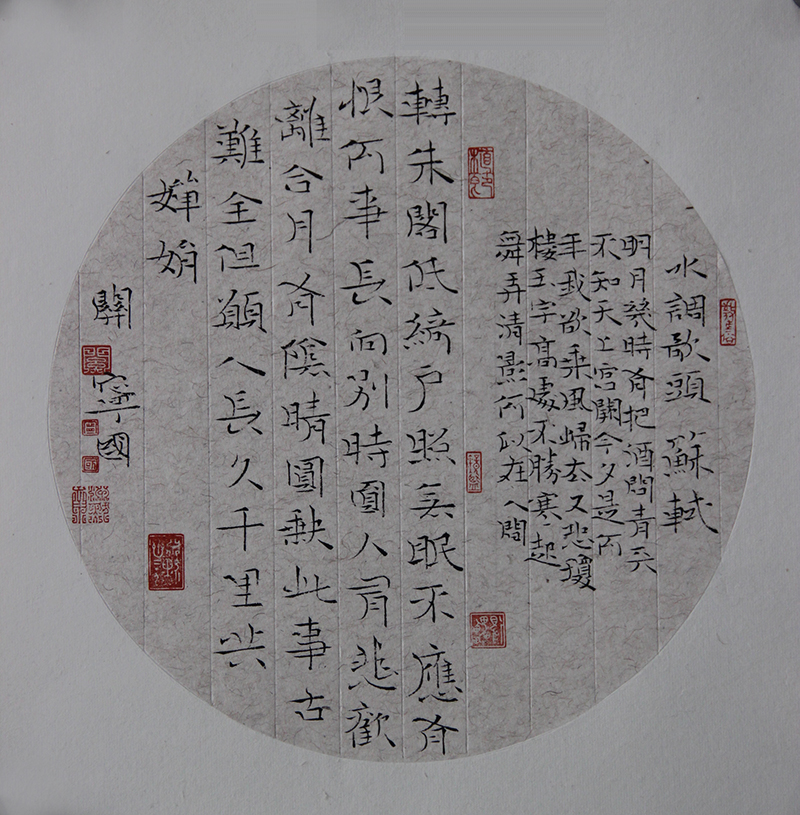 水調歌頭 蘇軾
明月幾時有把酒問青天
不知天上宮闕今夕是何
年我欲乘風歸去又恐瓊
樓玉宇高處不勝寒起
舞弄清影何似在人間
轉朱閣低綺戶照無眠不應有
恨何事長向別時圓人有悲歡
離合月有陰晴圓缺此事古
難全但願人長久千里共
嬋娟
關寧國